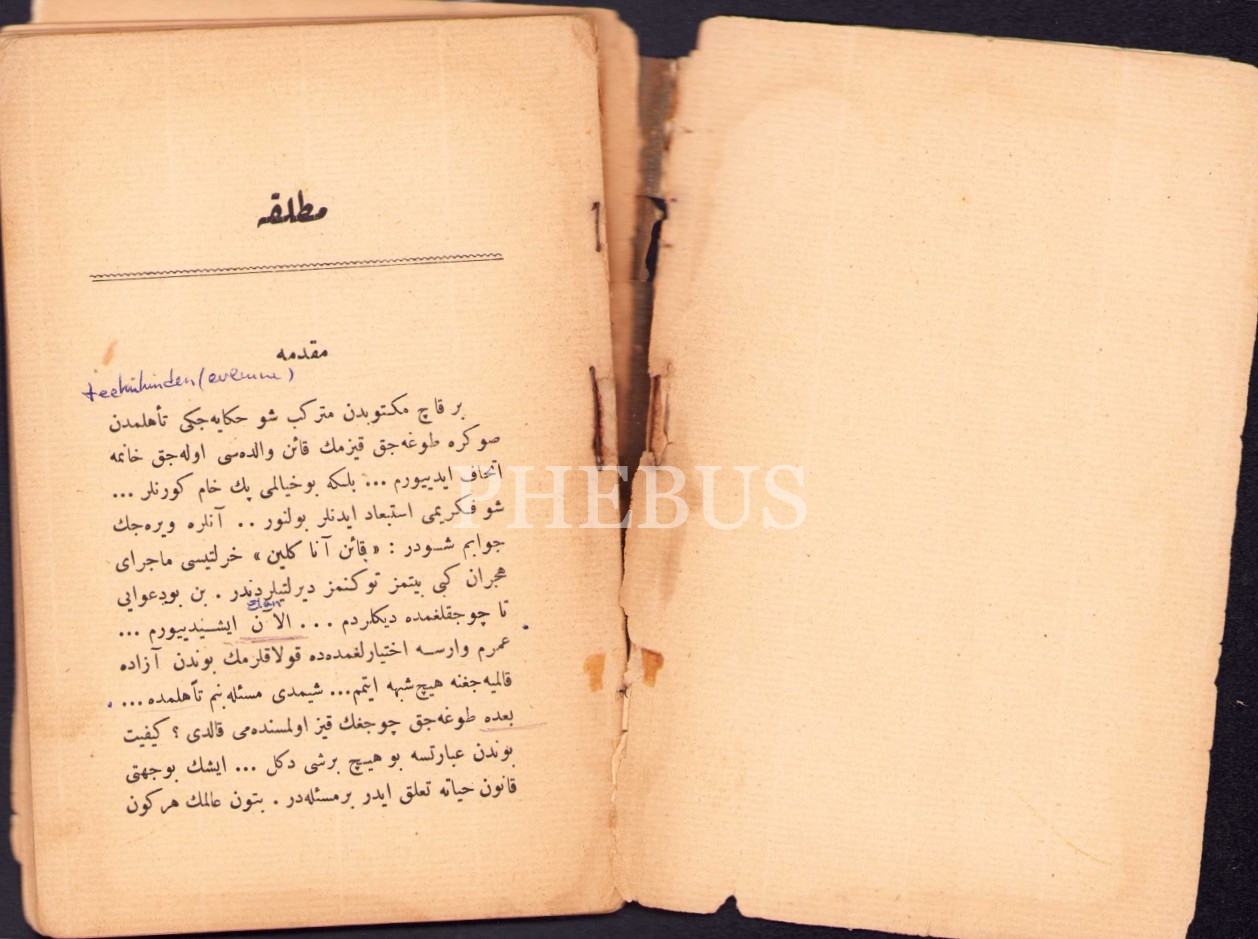 مطلقه
مقدمه
teehhülünden (evlenme)
بر قاچ مكتوبدن متركب شو حكايه‌جكی تأهلمدن
صوكره طوغه‌جق قيزمك قائن والده‌سی اوله‌جق خانمه
اتحاف ايدييورم ... بلكه بوخيالمی پك خام كورنلر ...
شو فكريمی استبعاد ايدنلر بولنور .. آنلره ويره‌جك
جوابم شودر : « قائن آنا كلين » خرلتيسی ماجرای
هجران كبی بيتمز توكنمز ديرلتيلردندر . بن بودعوايی
تا چوجقلغمده ديكلردم ... الآن ايشيدييورم ...
عمرم وارسه اختيارلغمده‌ده قولاقلرمك بوندن آزاده
قالميه‌جغنه هيچ شبهه ايتمم... شيمدی مسئله بنم تأهلمده ...
بعده طوغه‌جق چوجغك قيز اولمسنده‌می قالدی ؟ كيفيت
بوندن عبارتسه بو هيچ برشی دكل ... ايشك بوجهتی
قانون حياته تعلق ايدر برمسئله‌در . بتون عالمك هر كون
PHEBUS